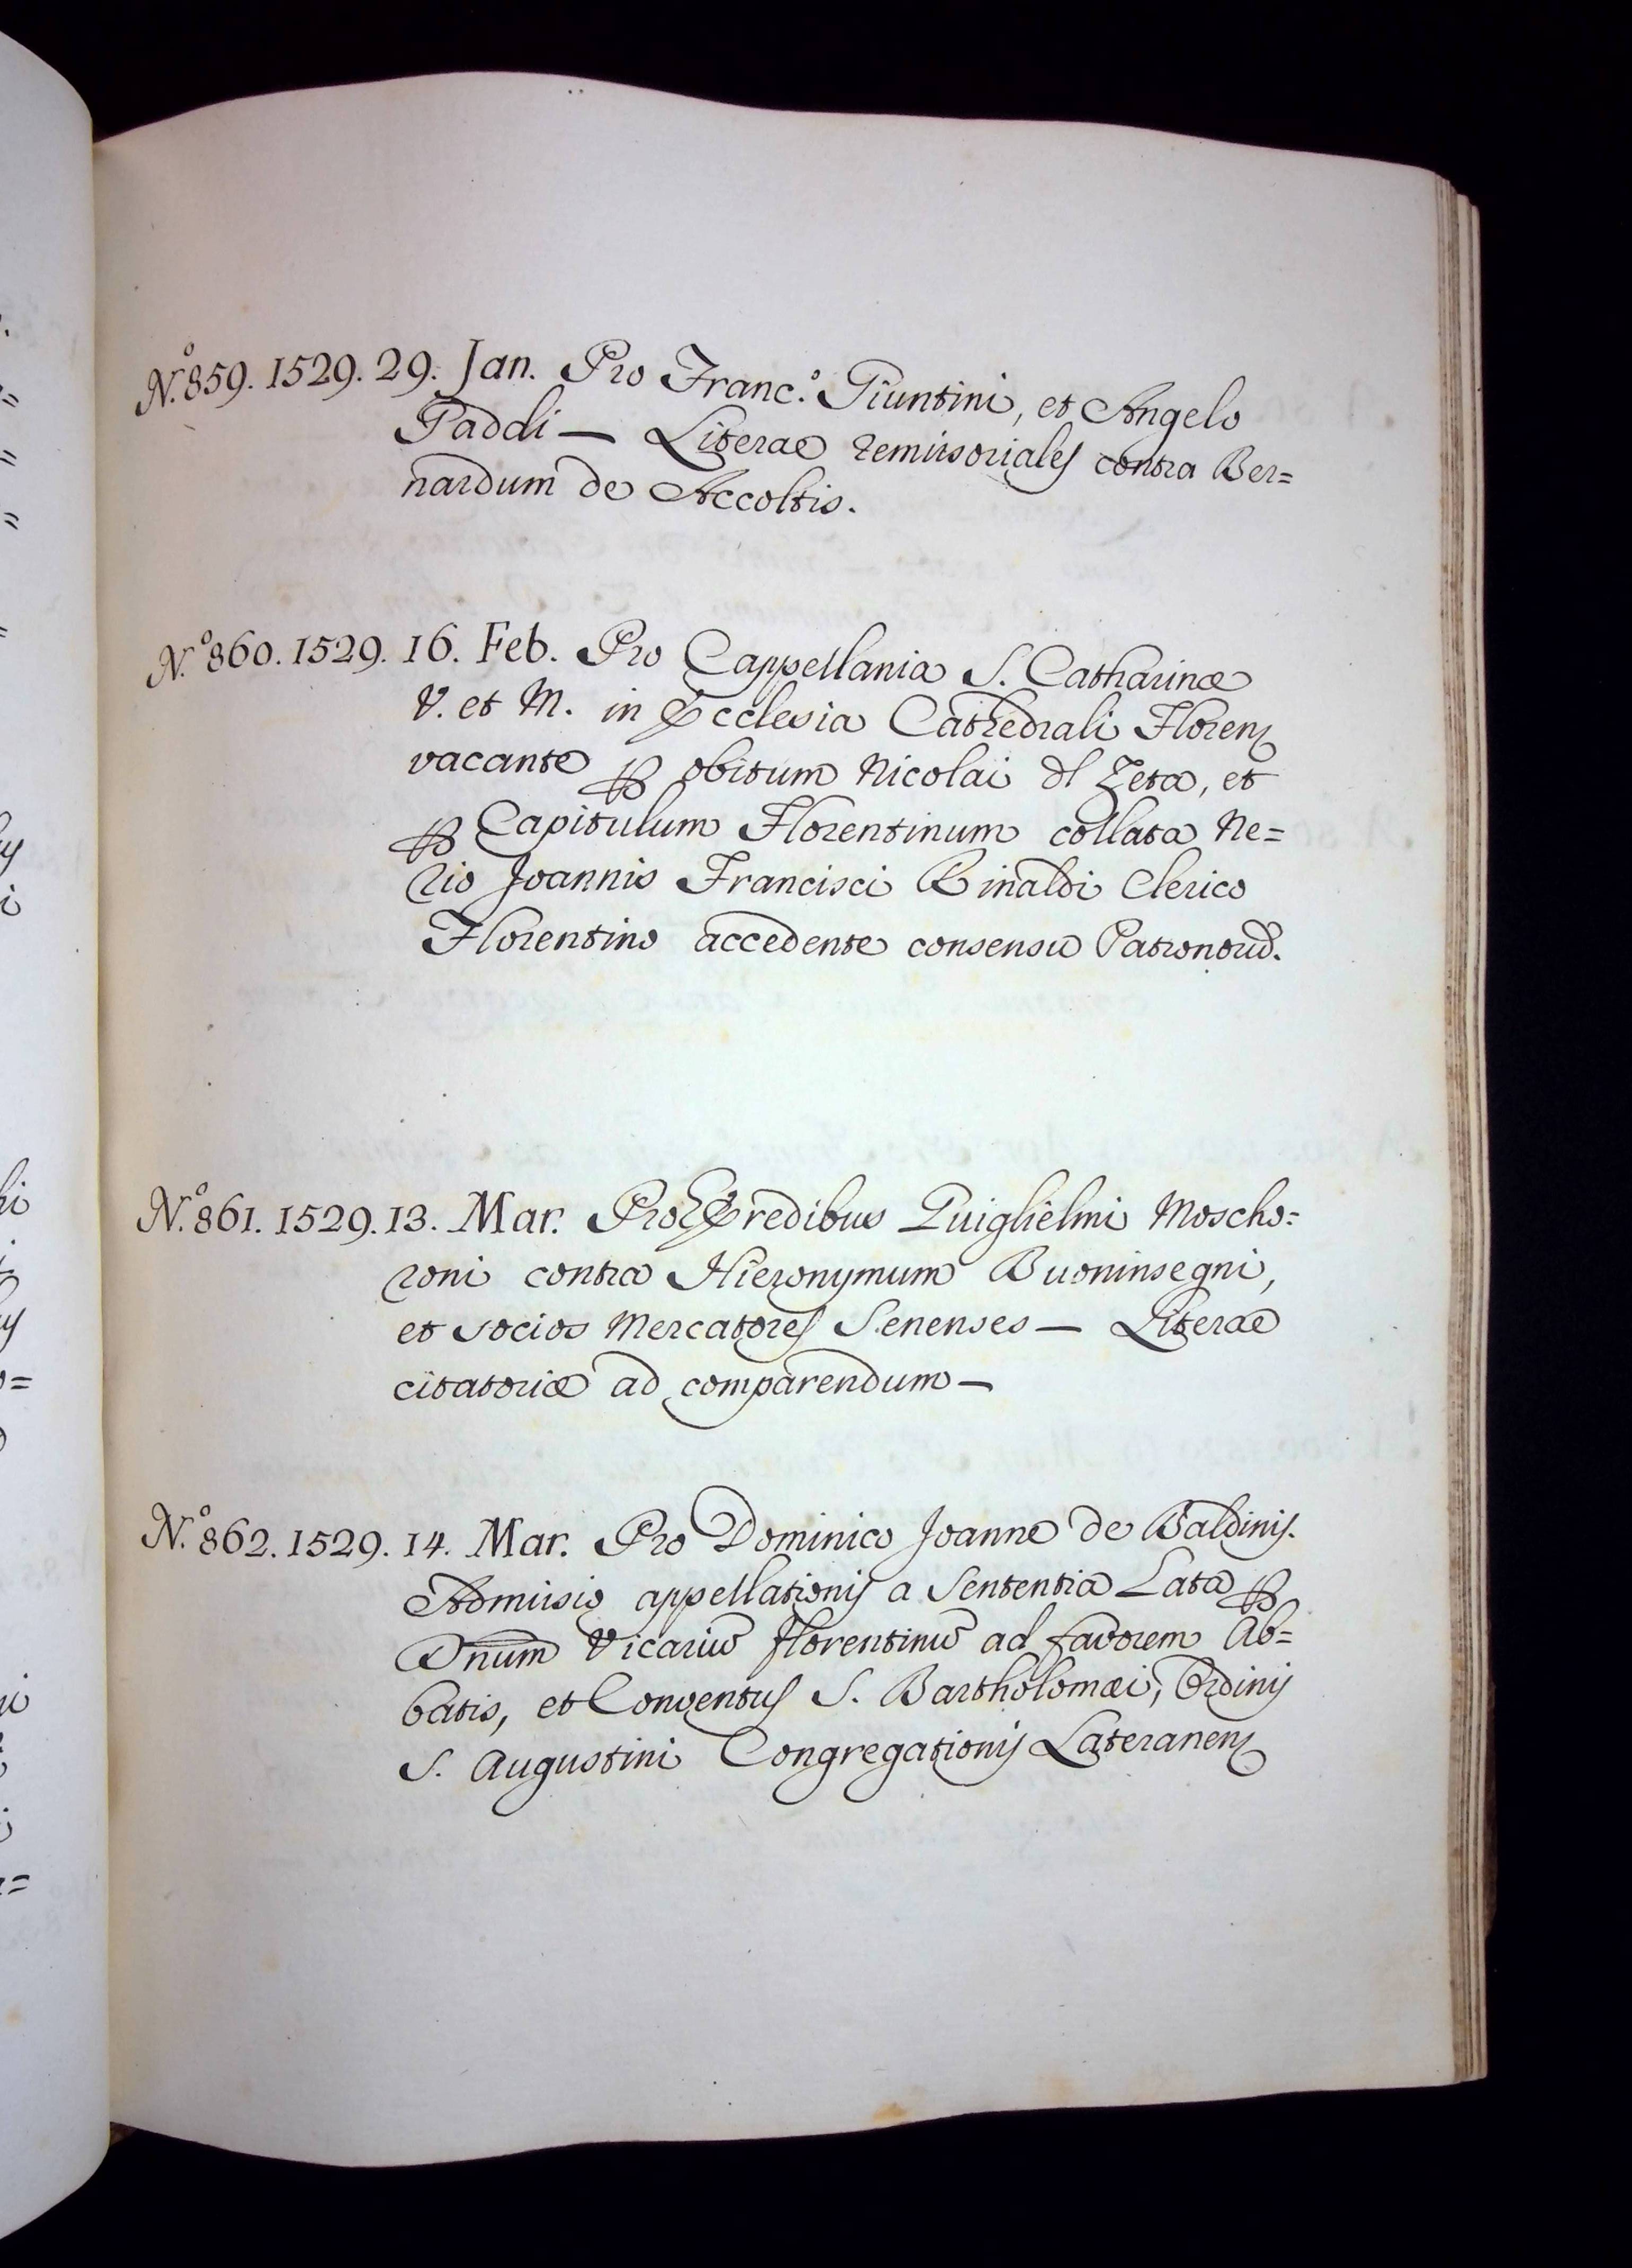 N.º 859. 1529. 29. Jan. Pro Franc.º Giuntini, et Angelo
Gaddi — Literae remissoriales contra Ber=
nardum de Accoltis.
N.º 860. 1529. 16. Feb. Pro Cappellania S. Catharinæ
V. et M. in Ecclesia Cathedrali Floren
vacante ꝑ obitum Nicolai Zeta, et
ꝑ Capitulum Florentinum collata Ne=
rio Joannis Francisci Rinaldi Clerico
Florentino accedente consensu
N.º 861. 1529. 13. Mar. Pro Heredibus Guiglielmi Moscho=
roni contra Hieronymum Buoninsegni,
et socios Mercatores Senenses — Literae
citatoriæ ad comparendum —
N.º 862. 1529. 14. Mar. Pro Dominico Joanne de Baldinis.
Admissio appellationis a Sententia Lata ꝑ
Dnum Vicariũ florentinũ ad favorem Ab=
batis, et Conventus S. Bartholomæi, Ordinis
S. Augustini Congregationis Lateranen